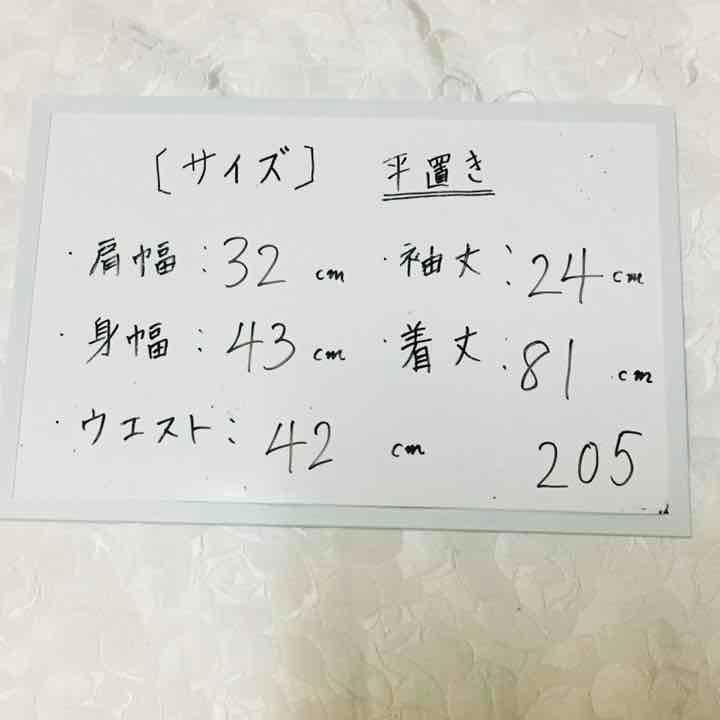 [サイズ] 平置き
・肩幅:32cm ・袖丈:24cm
・身幅:43cm ・着丈:81cm
・ウエスト:42cm 205